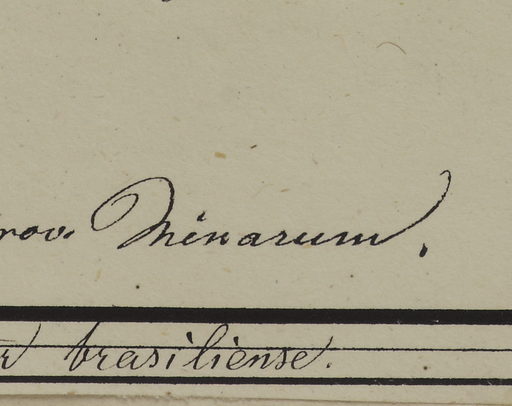 rov. Minarum.
r brasiliense.